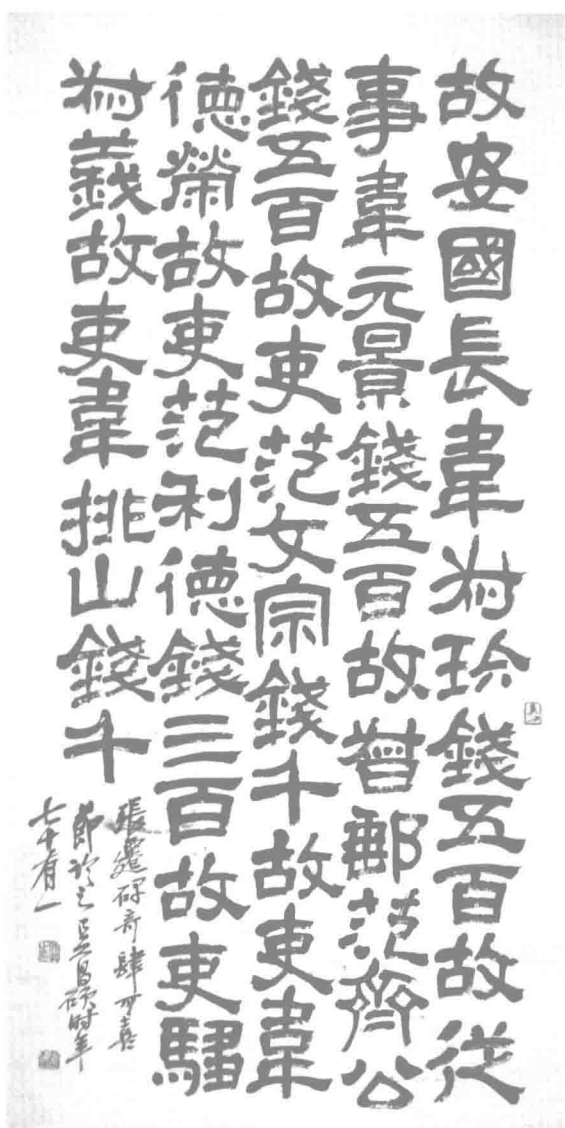 故安國長韋叔珍錢五百故從
事韋元景錢五百故督郵范齊公
錢五百故吏范文宗錢千故吏韋
德榮故吏范利德錢三百故吏騷
叔義故吏韋排山錢千
張遷碑奇肆可喜
節臨之吳昌碩時年
七十有一